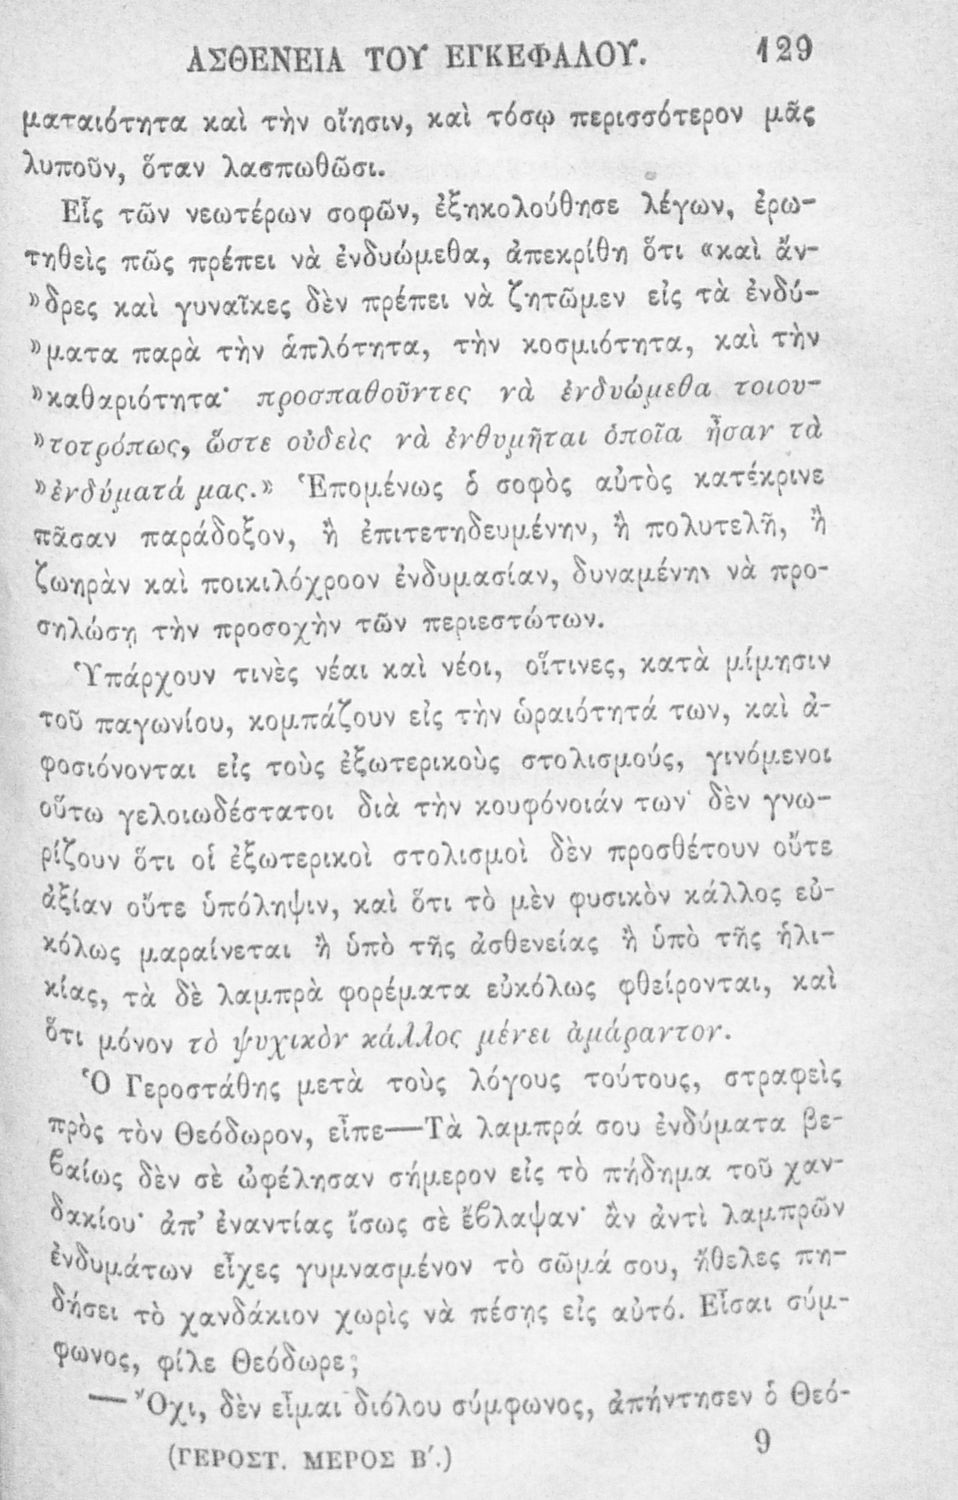 ΑΣΘΕΝΕΙΑ ΤΟΥ ΕΓΚΕΦΑΛΟΥ. 129
ματαιότητα καὶ τὴν οἴησιν, καὶ τόσῳ περισσότερον μᾶς
λυποῦν, ὅταν λασπωθῶσι.
Εἷς τῶν νεωτέρων σοφῶν, ἐξηκολούθησε λέγων, ἐρω-
τηθεὶς πῶς πρέπει νὰ ἐνδυώμεθα, ἀπεκρίθη ὅτι «καὶ ἄν-
»δρες καὶ γυναῖκες δὲν πρέπει νὰ ζητῶμεν εἰς τὰ ἐνδύ-
»ματα παρὰ τὴν ἁπλότητα, τὴν κοσμιότητα, καὶ τὴν
»καθαριότητα· προσπαθοῦντες νὰ ἐνδυώμεθα τοιου-
»τοτρόπως, ὥστε οὐδεὶς νὰ ἐνθυμῆται ὁποῖα ἦσαν τὰ
»ἐνδύματά μας.» Ἑπομένως ὁ σοφὸς αὐτὸς κατέκρινε
πᾶσαν παράδοξον, ἢ ἐπιτετηδευμένην, ἢ πολυτελῆ, ἢ
ζωηρὰν καὶ ποικιλόχροον ἐνδυμασίαν, δυναμένην νὰ προ-
σηλώσῃ τὴν προσοχὴν τῶν περιεστώτων.
Ὑπάρχουν τινὲς νέαι καὶ νέοι, οἵτινες, κατὰ μίμησιν
τοῦ παγωνίου, κομπάζουν εἰς τὴν ὡραιότητά των, καὶ ἀ-
φοσιόνονται εἰς τοὺς ἐξωτερικοὺς στολισμούς, γινόμενοι
οὕτω γελοιωδέστατοι διὰ τὴν κουφόνοιάν των· δὲν γνω-
ρίζουν ὅτι οἱ ἐξωτερικοὶ στολισμοὶ δὲν προσθέτουν οὔτε
ἀξίαν οὔτε ὑπόληψιν, καὶ ὅτι τὸ μὲν φυσικὸν κάλλος εὐ-
κόλως μαραίνεται ἢ ὑπὸ τῆς ἀσθενείας ἢ ὑπὸ τῆς ἡλι-
κίας, τὰ δὲ λαμπρὰ φορέματα εὐκόλως φθείρονται, καὶ
ὅτι μόνον τὸ ψυχικὸν κάλλος μένει ἀμάραντον.
Ὁ Γεροστάθης μετὰ τοὺς λόγους τούτους, στραφεὶς
πρὸς τὸν Θεόδωρον, εἶπε—Τὰ λαμπρά σου ἐνδύματα βε-
ϐαίως δὲν σὲ ὠφέλησαν σήμερον εἰς τὸ πήδημα τοῦ χαν-
δακίου· ἀπ' ἐναντίας ἴσως σὲ ἔϐλαψαν· ἂν ἀντὶ λαμπρῶν
ἐνδυμάτων εἶχες γυμνασμένον τὸ σῶμά σου, ἤθελες πη-
δήσει τὸ χανδάκιον χωρὶς νὰ πέσῃς εἰς αὐτό. Εἶσαι σύμ-
φωνος, φίλε Θεόδωρε;
— Ὄχι, δὲν εἶμαι διόλου σύμφωνος, ἀπήντησεν ὁ Θεό-
(ΓΕΡΟΣΤ. ΜΕΡΟΣ Β΄.) 9